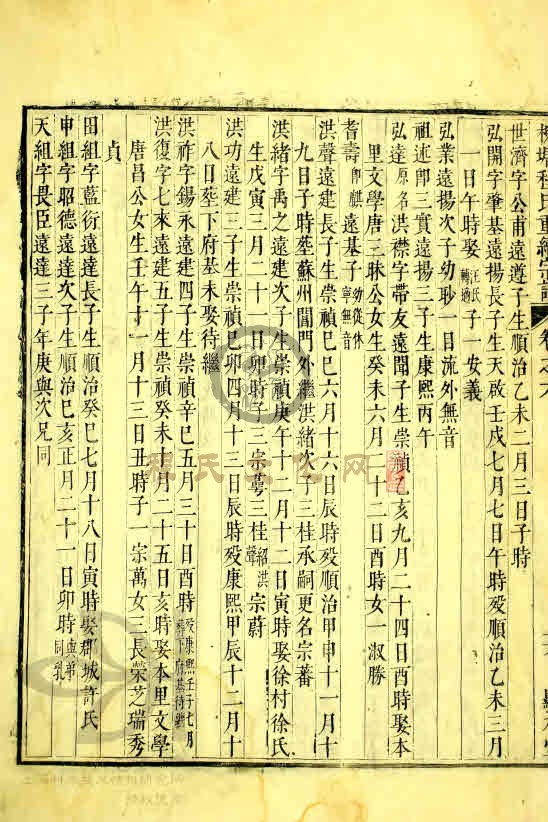 世濟字公甫遠遵子生順治乙未二月三日子時
弘開字肇基遠揚長子生天啟壬戌七月七日午時殁順治乙未三月
一日午時娶汪氏轉適子一安義
弘業遠揚次子幼耽一目流外無音
祖述即三實遠揚三子生康熙丙午
弘達原名洪襟字帶友遠聞子生崇禎乙亥九月二十四日酉時娶本
里文學唐三昧公女生癸未六月二十二日酉時女一淑勝
耆壽即麒遠基子幼從休寧無音
洪聲遠建長子生崇禎己巳六月十六日辰時殁順治甲申十一月十
九日子時塟蘇州閶門外繼洪緒次子三桂承嗣更名宗蕃
洪緒字禹之遠建次子生崇禎庚午十二月十二日寅時娶徐村徐氏
生戊寅三月二十一日卯時子三宗蕚三桂紹洪聲宗蔚
洪功遠建三子生崇禎己卯四月十三日辰時殁康熙甲辰十二月十
八日塟下府基未娶待繼
洪祚字錫永遠建四子生崇禎辛巳五月三十日酉時殁康熙壬子七月塟下府基待繼
洪復字七來遠建五子生崇禎癸未十月二十五日亥時娶本里文學
唐昌公女生壬午十一月十三日丑時子一宗萬女三長榮芝瑞秀
貞
田組字藍衍遠達長子生順治癸巳七月十八日寅時娶郡城許氏
申組字昭德遠達次子生順治己亥正月二十一日卯時與弟同乳
天組字畏臣遠達三子年庚與次兄同